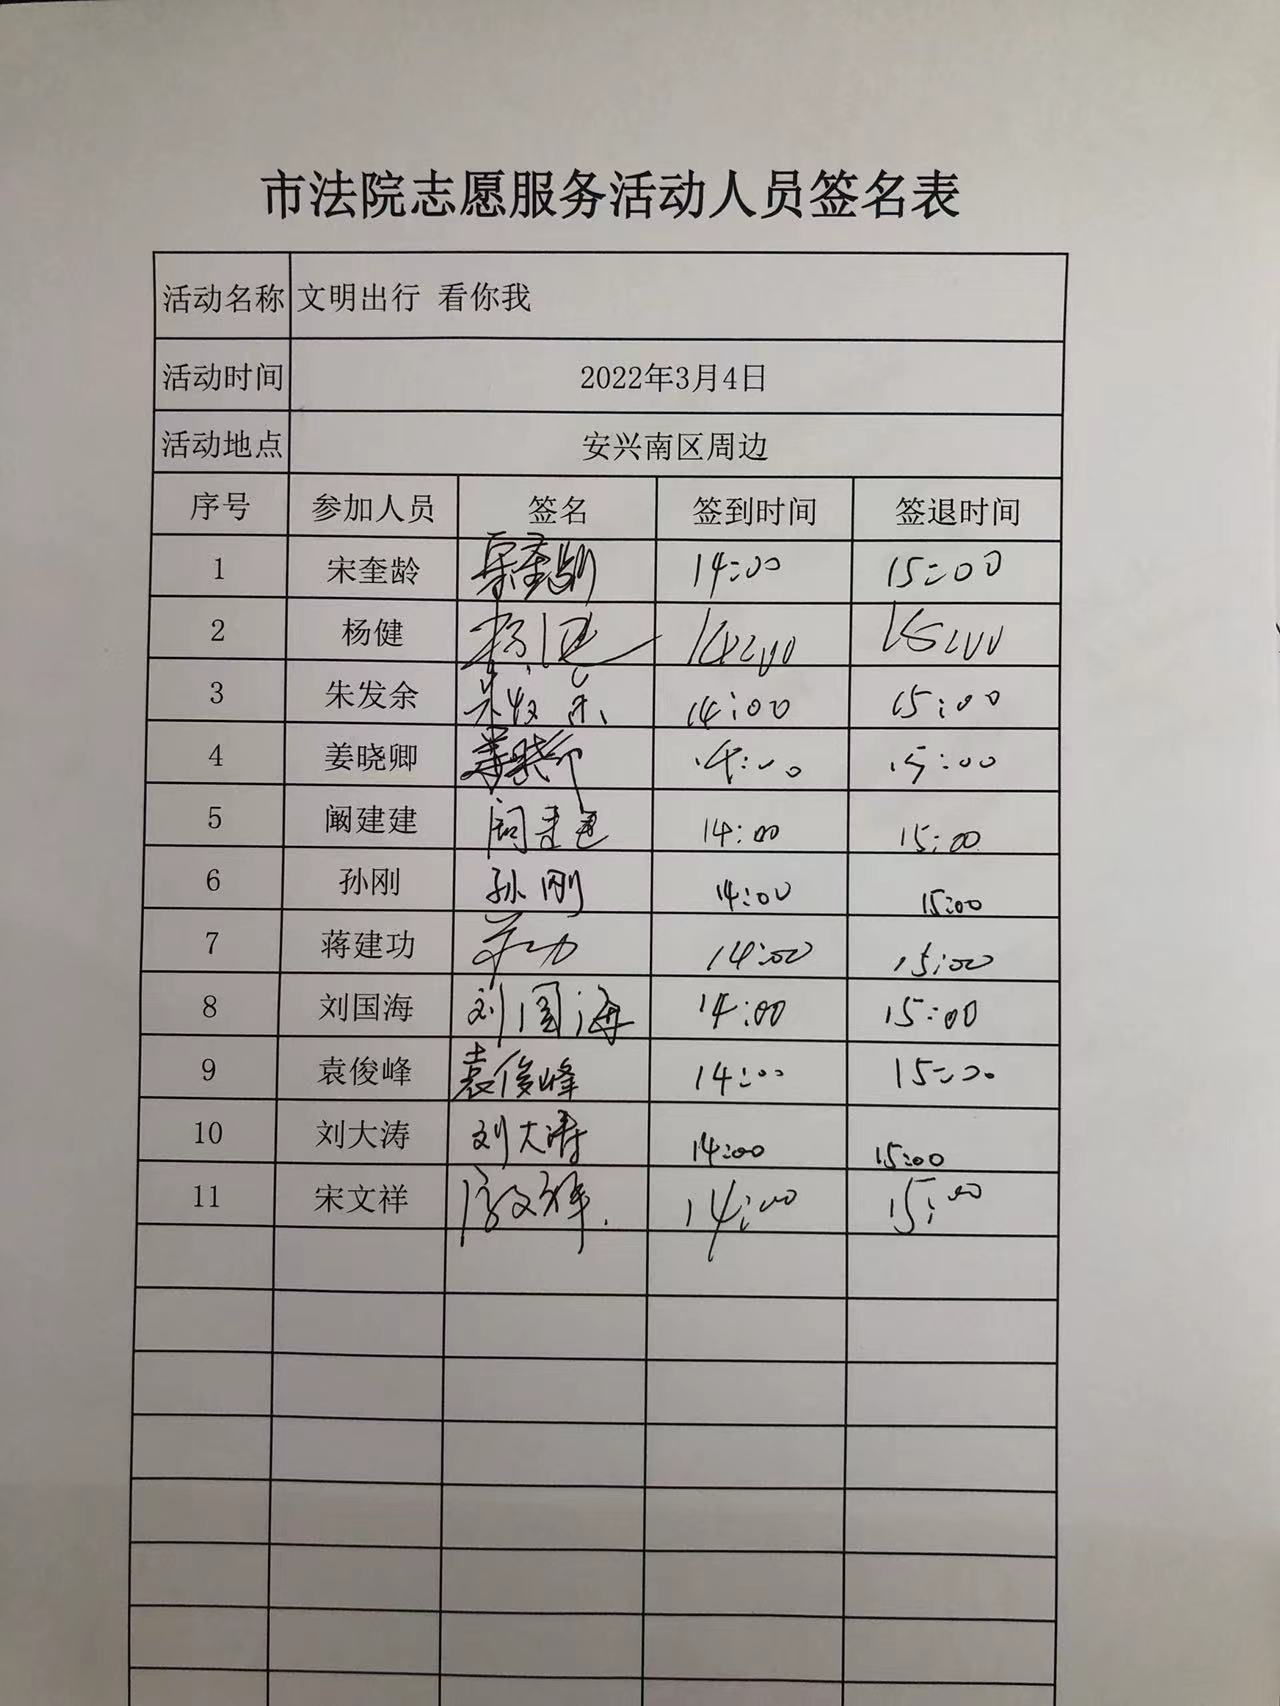 市法院志愿服务活动人员签名表
活动名称 文明出行 看你我
活动时间 2022年3月4日
活动地点 安兴南区周边
序号 参加人员 签名 签到时间 签退时间
1 宋奎龄 宋奎龄 14:00 15:00
2 杨健 杨健 14:00 15:00
3 朱发余 朱发余 14:00 15:00
4 姜晓卿 姜晓卿 14:00 15:00
5 阚建建 14:00 15:00
6 孙刚 孙刚 14:00 15:00
7 蒋建功 14:00 15:00
8 刘国海 刘国海 14:00 15:00
9 袁俊峰 袁俊峰 14:00 15:00
10 刘大涛 刘大涛 14:00 15:00
11 宋文祥 宋文祥 14:00 15:00